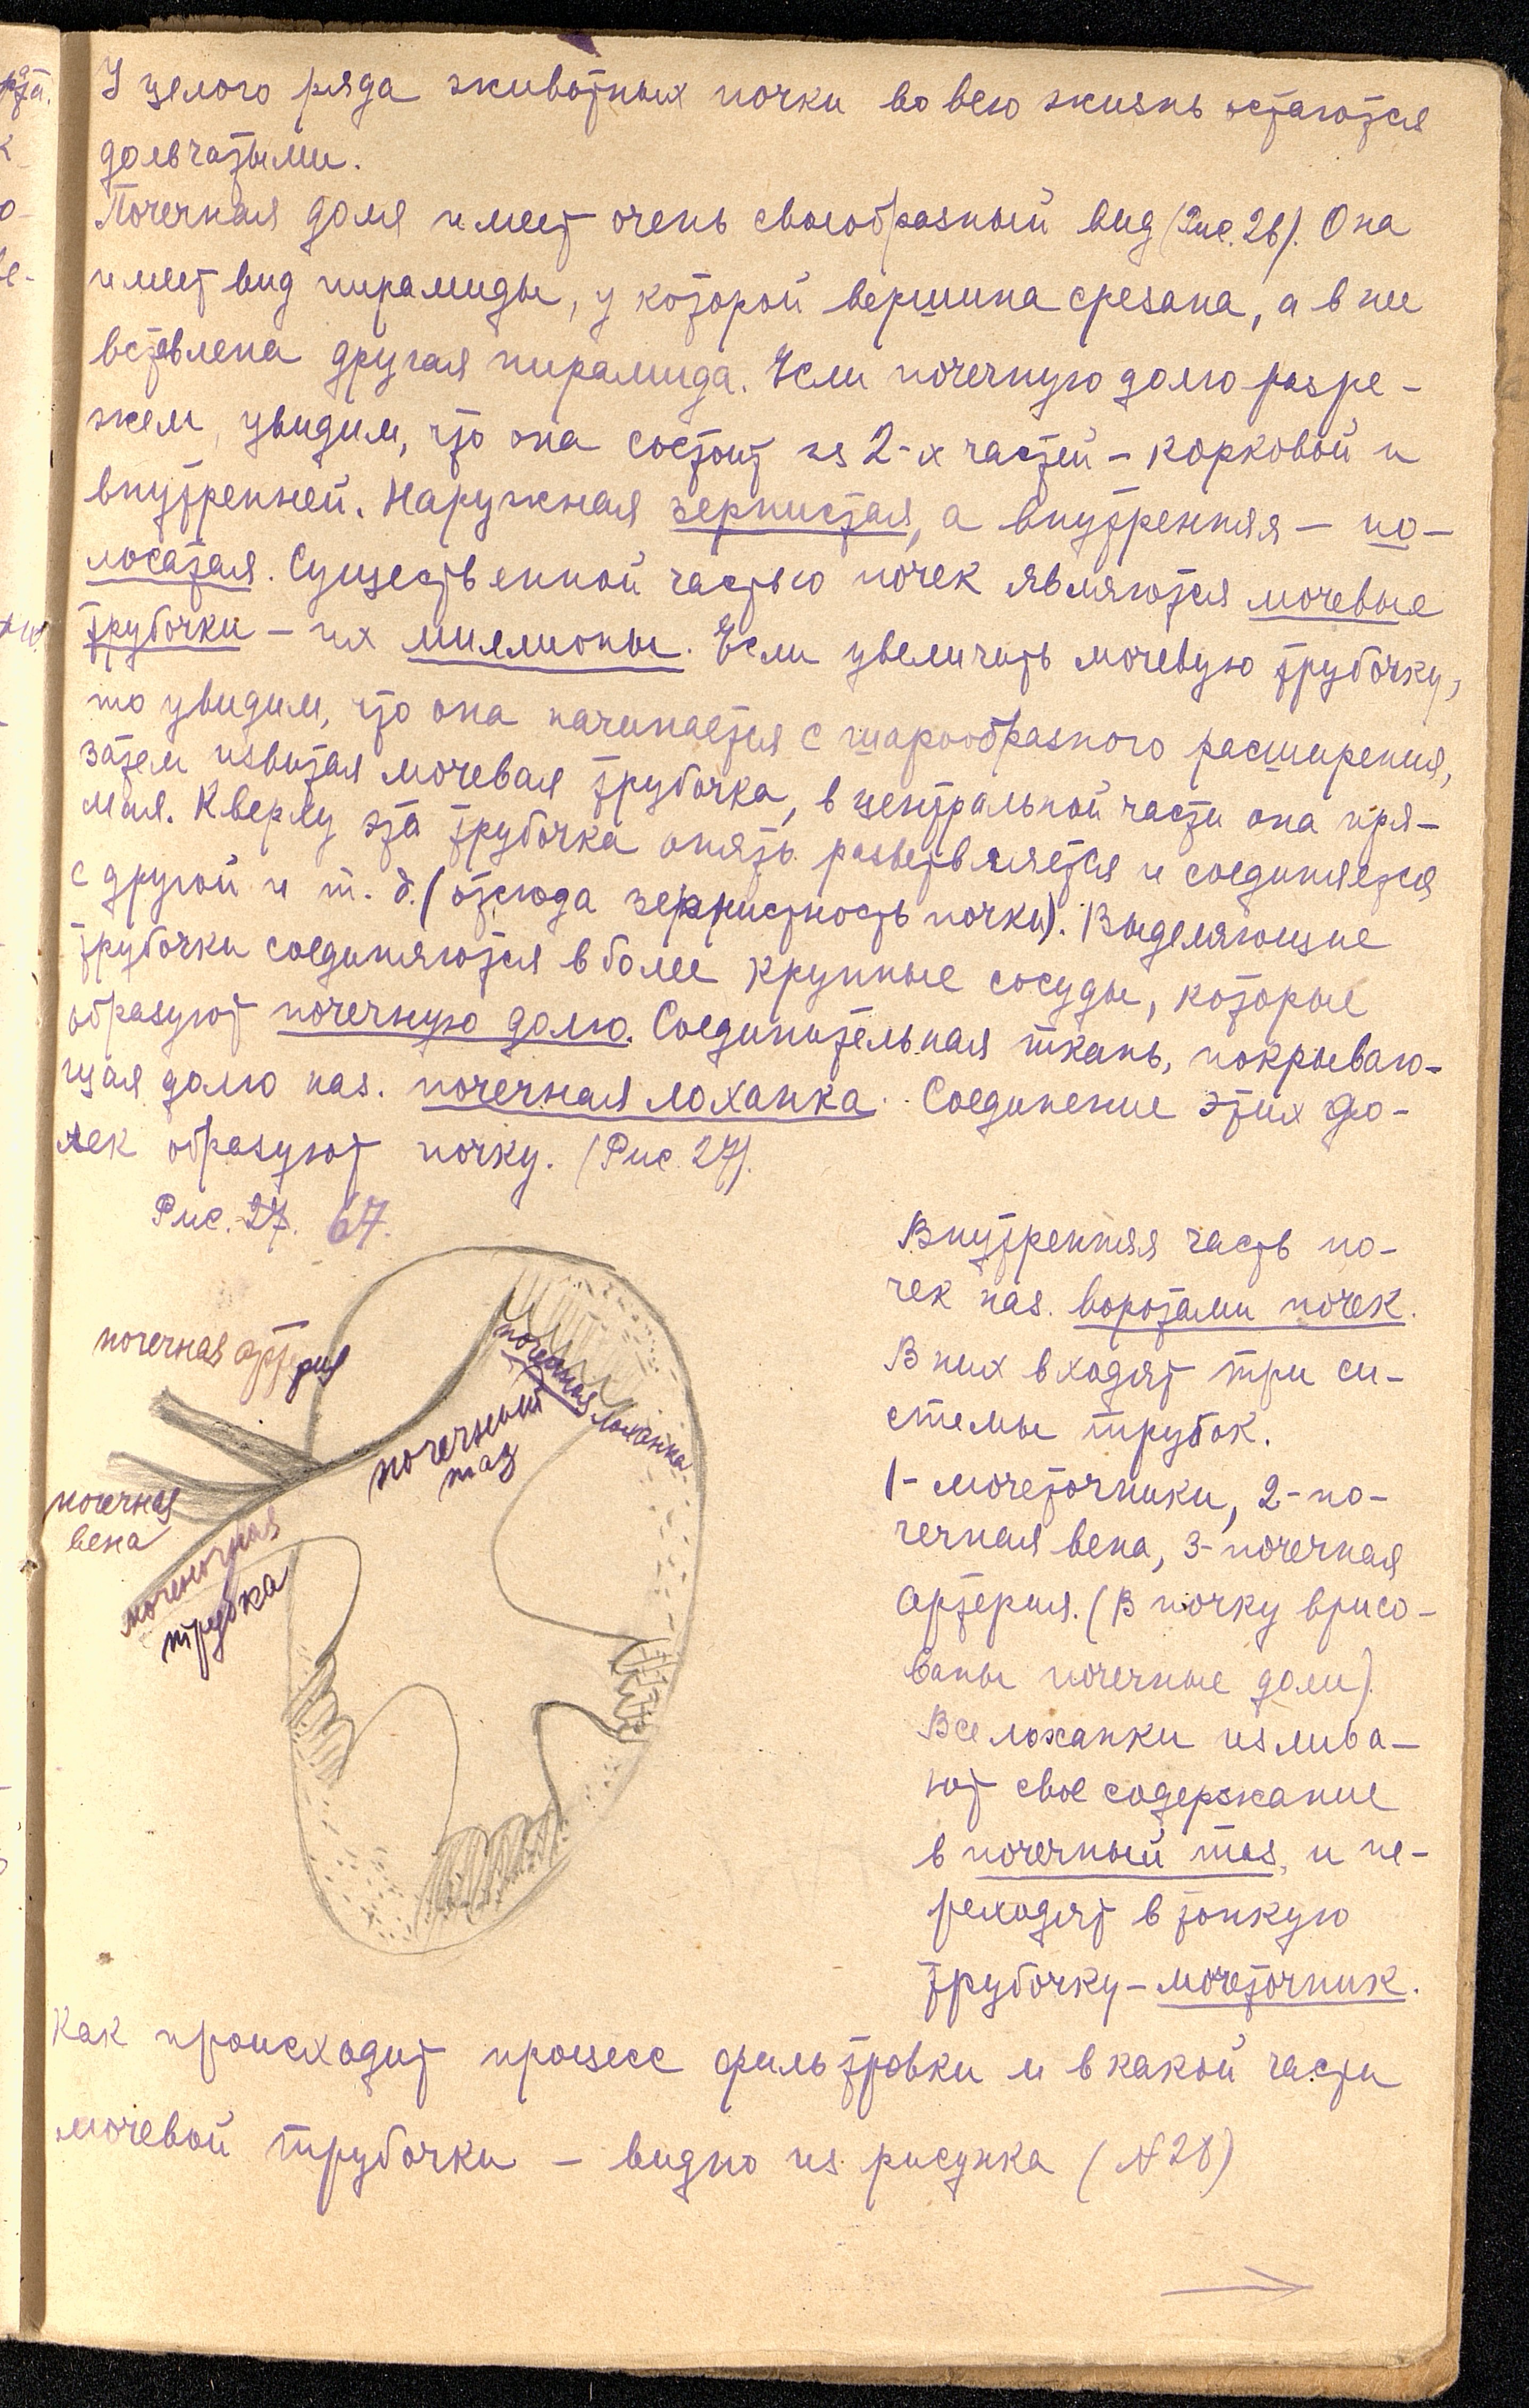 У целого ряда животных почки во всю жизнь остаются
дольчатыми.
Почечная доля имеет очень своеобразный вид (Рис. 26). Она
имеет вид пирамиды, у которой вершина срезана, а в нее
вставлена другая пирамида. Если почечную долю разре-
жем, увидим, что она состоит из 2-х частей – корковой и
внутренней. Наружная зернистая, а внутренняя – по-
лосатая. Существенной частью почек являются мочевые
трубочки – их миллионы. Если увеличить мочевую трубочку,
то увидим, что она начинается с шарообразного расширения,
затем извитая мочевая трубочка, в центральной части она пря-
мая. Кверху эта трубочка опять разветвляется и соединяется
с другой и т. д. (отсюда зернистность почки). Выделяющие
трубочки соединяются в более крупные сосуды, которые
образуют почечную долю. Соединительная ткань, покрываю-
щая долю наз. почечная лоханка. Соединение этих до-
лек образуют почку. (Рис. 27).
Рис. 27. 67.
почечная артерия
почечная лоханка
почечный
таз
почечная
вена
мочеточная
трубка
Внутренняя часть по-
чек наз. воротами почек.
В них входят три си-
стемы трубок.
1- мочеточники, 2- по-
чечная вена, 3- почечная
артерия. (В почку врисо-
ваны почечные доли).
Все лоханки излива-
ют свое содержание
в почечный таз, и пе-
реходят в тонкую
трубочку – мочеточник.
Как происходит процесс фильтровки и в какой части
мочевой трубочки – видно из рисунка (№28)